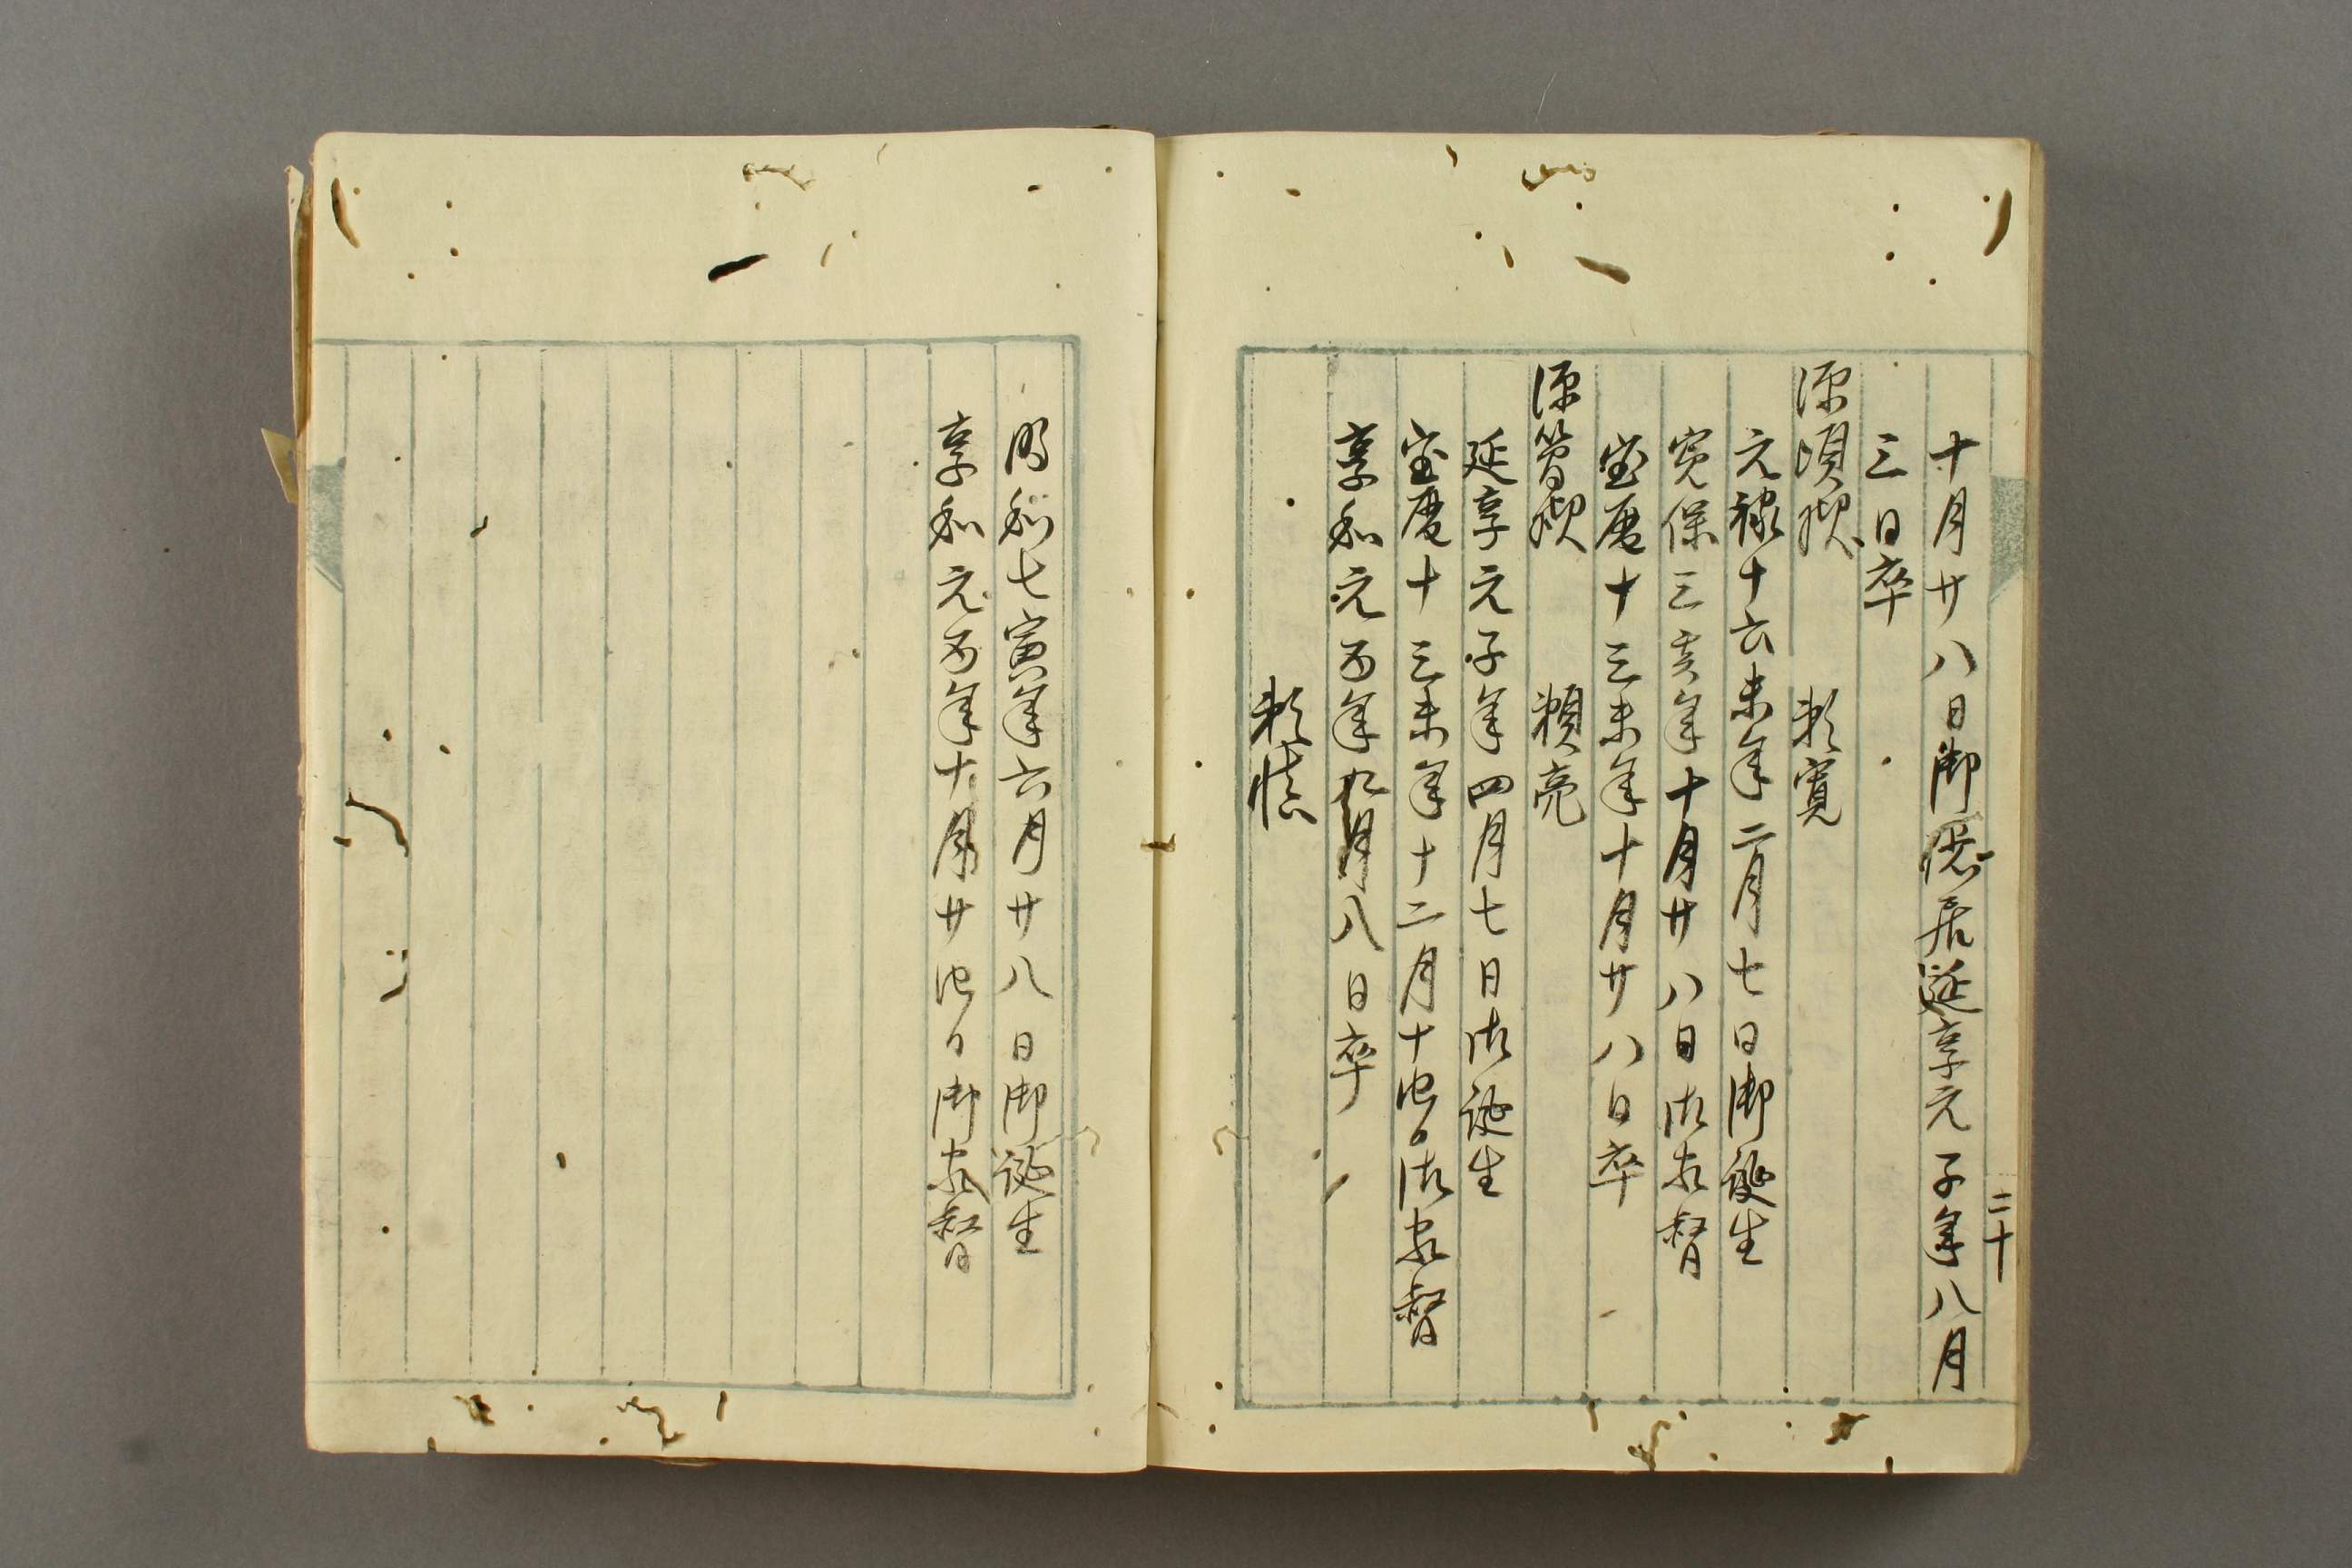 二十
十月廿八日御隠居延享元子年八月
三日卒
源頃 頼寛
元禄十六未年二月七日御誕生
寛保三亥年十月廿八日御家督
宝暦十三未年十月廿八日卒
源簡 頼亮
延享元子年四月七日御誕生
宝暦十三未年十二月十四日御家督
享和元酉年九月八日卒
頼慎
明和七寅年六月廿八日御誕生
享和元酉年十月廿四日御家督